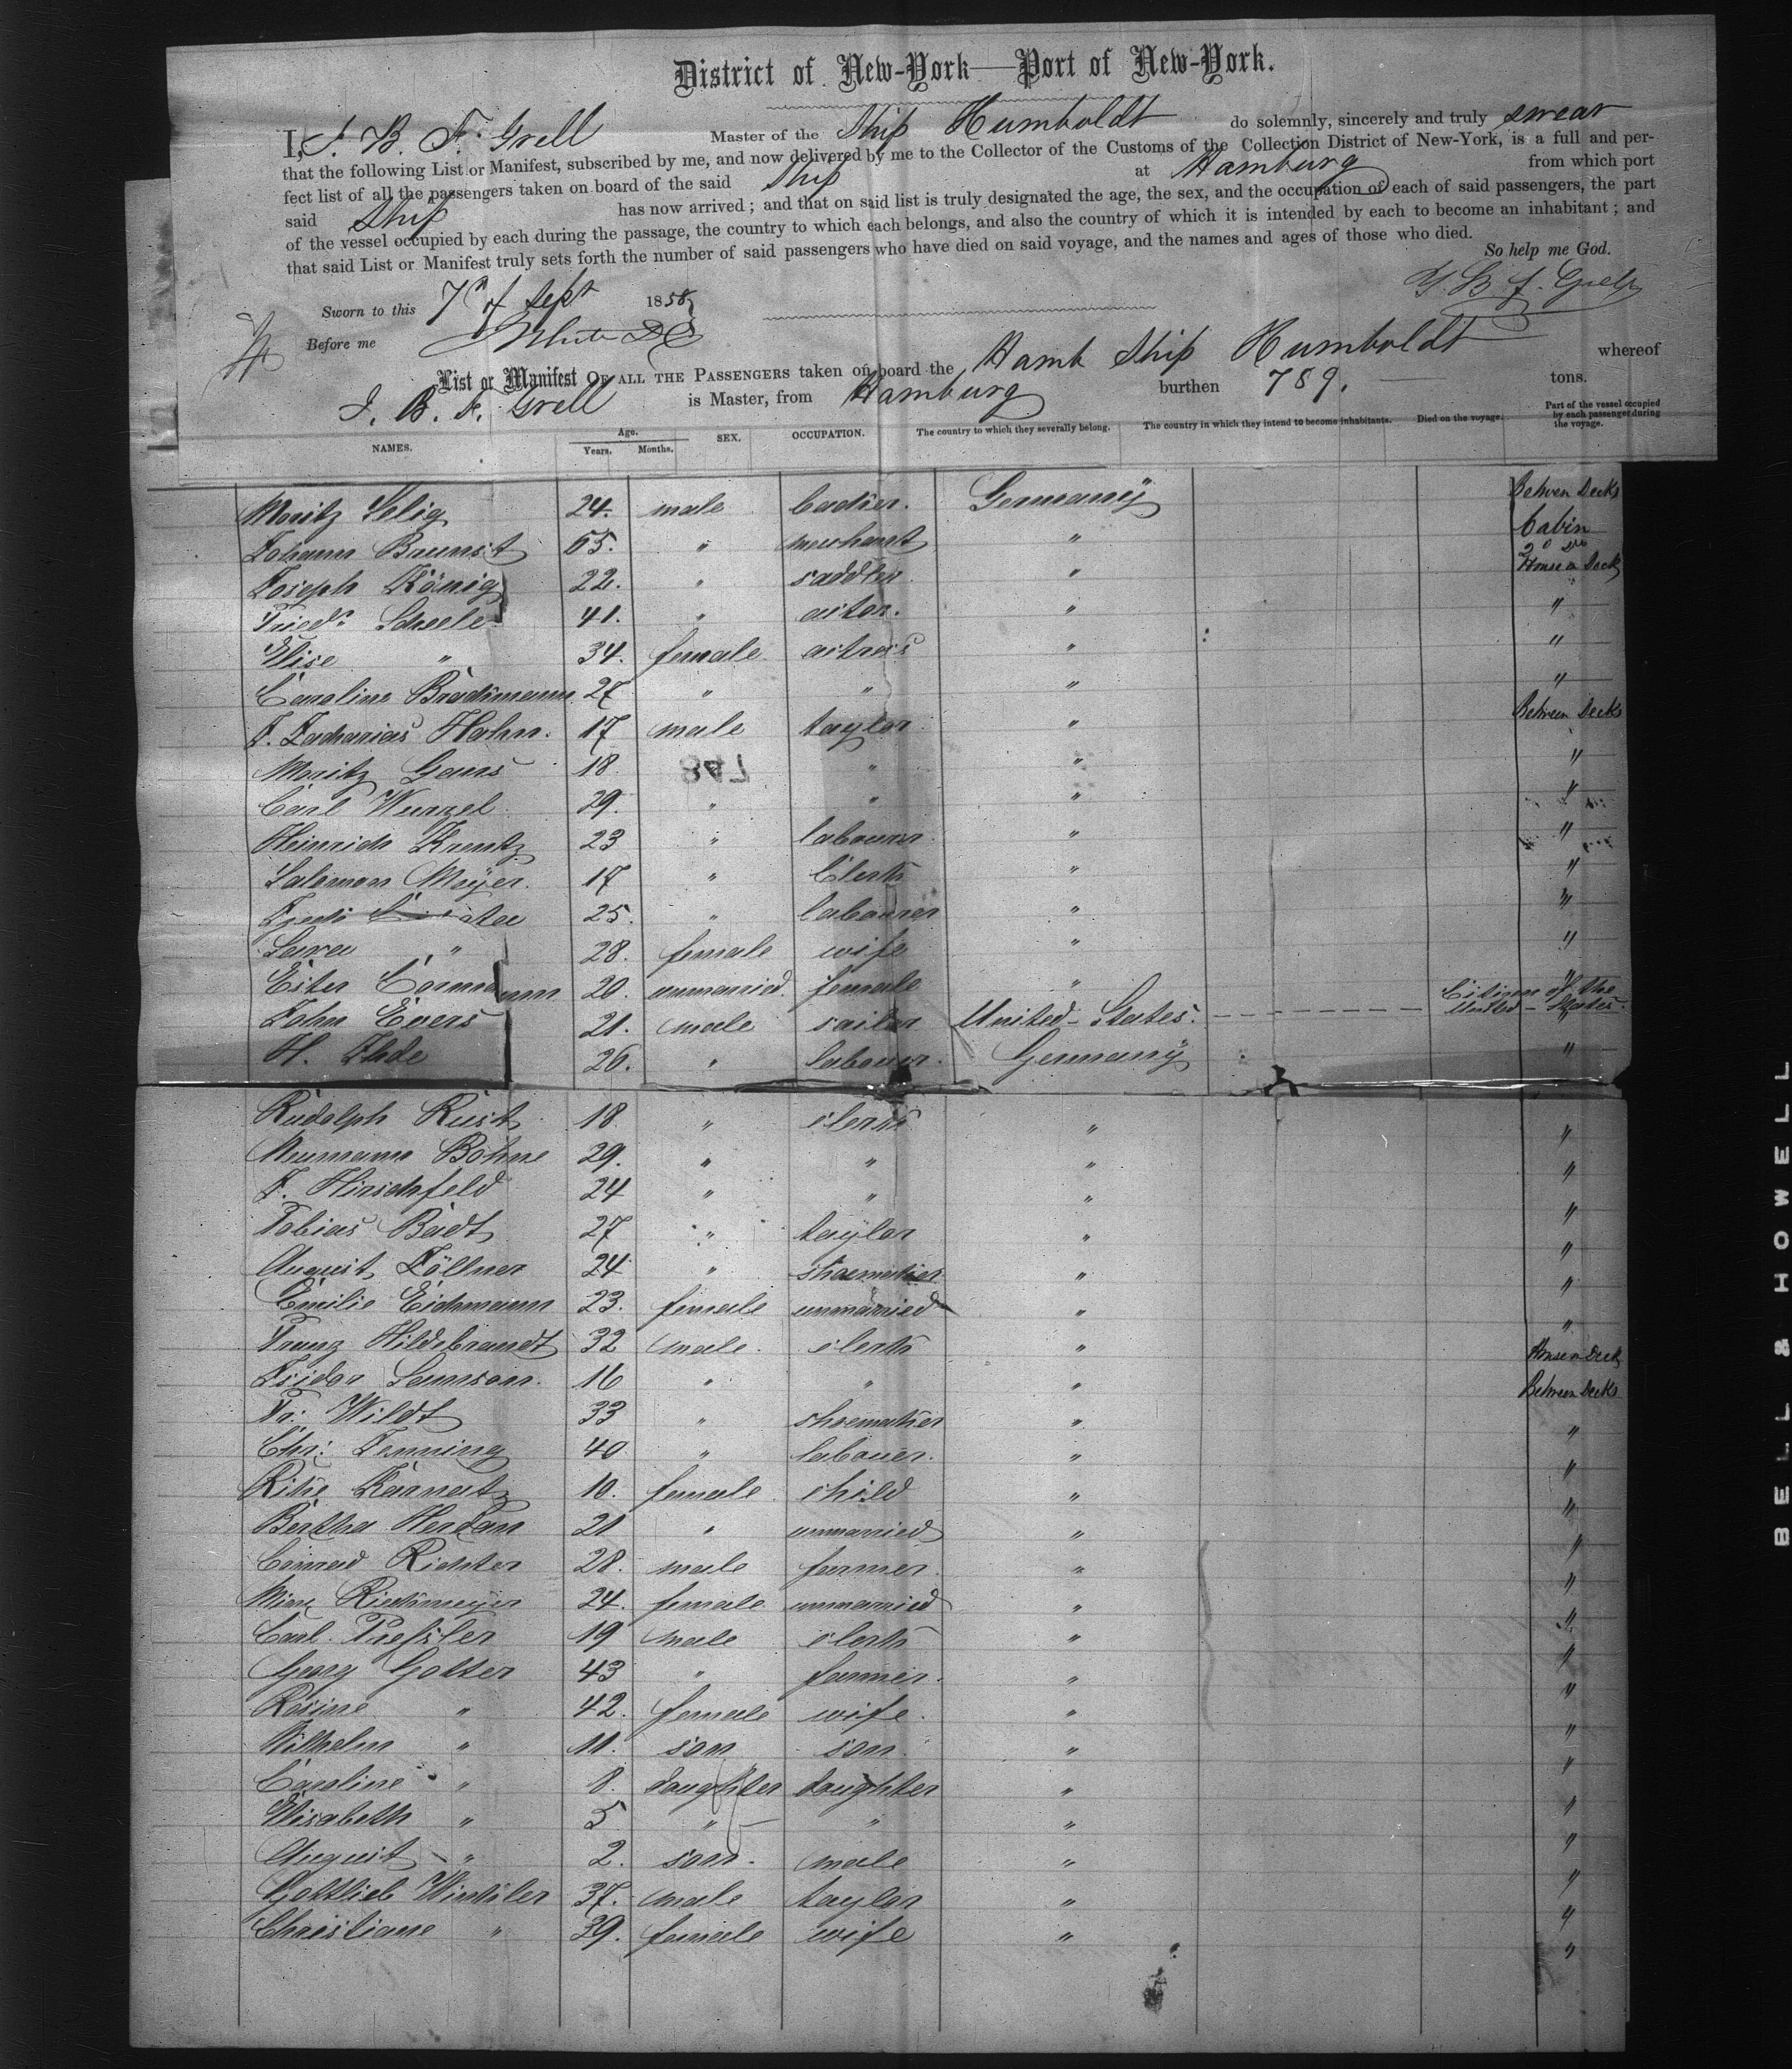 District of New-York—Port of New-York.
I, J. B. F. Grell Master of the Ship Humboldt do solemnly, sincerely and truly swear
that the following List or Manifest, subscribed by me, and now delivered by me to the Collector of the Customs of the Collection District of New-York, is a full and per-
fect list of all the passengers taken on board of the said Ship at Hamburg from which port
said Ship has now arrived; and that on said list is truly designated the age, the sex, and the occupation of each of said passengers, the part
of the vessel occupied by each during the passage, the country to which each belongs, and also the country of which it is intended by each to become an inhabitant; and
that said List or Manifest truly sets forth the number of said passengers who have died on said voyage, and the names and ages of those who died.
So help me God.
J B F. Grell
Sworn to this 7th of Sept 1858
Before me White
List or Manifest OF ALL THE PASSENGERS taken on board the Hamb Ship Humboldt whereof
J. B. F. Grell is Master, from Hamburg burthen 789. tons.
NAMES. Age. Years. Months. SEX. OCCUPATION. The country to which they severally belong. The country in which they intend to become inhabitants. Died on the voyage. Part of the vessel occupied by each passenger during the voyage.
Moritz Selig 24. male Germany Between Decks
Johann Brunst 65. " merchant " Cabin
Joseph König 22. " saddler " House on Deck
Friedr. Scheele 41. " actor. " "
Elise " 34. female actress " "
Caroline Brockmann 27 " " " "
J. Zacharias Hahn. 17 male taylor " Between Decks
Moritz Gans 18 847 " " "
Carl Wurzel 29. " " " "
Heinrich Krentz 23 " labourer " "
Salomon Mayer. 17 " Clerk " "
25. " labourer " "
Sara " 28. female wife " "
Ester 20. unmarried. female " "
John Evers 21. male sailor United-States. Citizen of the United-States. "
H. Thde 26. " labourer. Germany "
Rudolph Rust 18 " clerk " "
Neumann Böhme 29. " " " "
J. Hirschfeld 24 " " " "
Tobias Badt 27 " taylor " "
August Zöllner 24 " shoemaker " "
Emilie Eichmann 23. female unmarried " "
Franz Hildebrandt 32 male clerk " House on Deck
Isidor Samson. 16 " " " Between Decks
Fr: Wildt 33 " shoemaker " "
Chr: Fenning 40 " labouer. " "
Rike Karnatz 10. female child " "
Bertha Herdan 21 " unmarried " "
Conrad Richter 28. male farmer. " "
Mina Rickmeyer 24. female unmarried " "
Carl Preßler 19 male clerk " "
Georg Golter 43 " farmer. " "
Rosine " 42. female wife. " "
Wilhelm " 11. son son. " "
Caroline " 8. daughter daughter " "
Elisabeth " 5 " " " "
August " 2. son. male " "
Gottlieb Winkler 37. male taylor " "
Christiane " 39. female wife " "
BELL & HOWELL